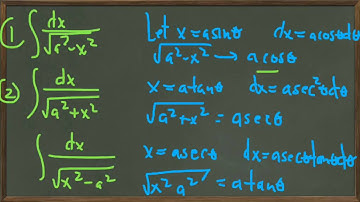 ① ∫ dx / √(a²-x²) Let x=asinθ dx=acosθdθ
√(a²-x²) → acosθ
② ∫ dx / √(a²+x²) x=atanθ dx=asec²θdθ
√(a²+x²) = asecθ
∫ dx / √(x²-a²) x=asecθ dx=asecθtanθdθ
√(x² a²) = atanθ